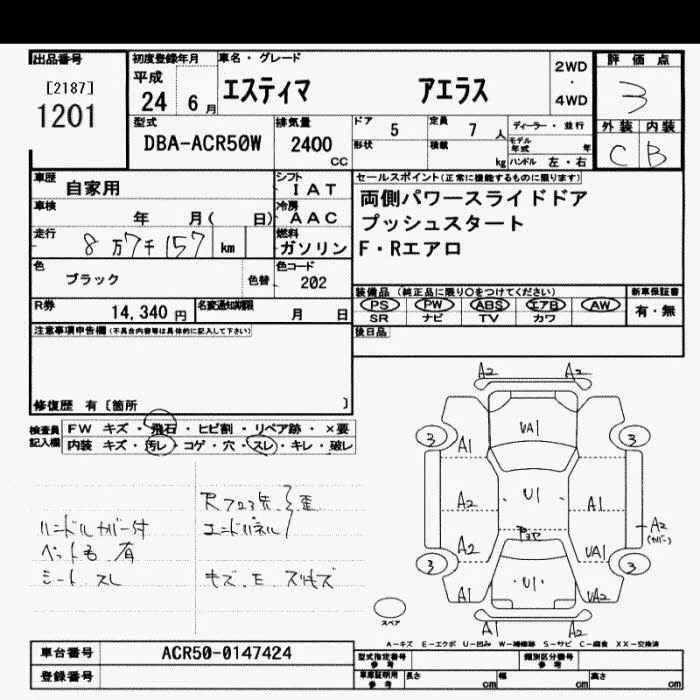 出品番号
[2187]
1201
初度登録年月
平成
24 6月
車名・グレード
エスティマ アエラス
2WD
・
4WD
評価点
3
外装 内装
C B
型式
DBA-ACR50W
排気量
2400
cc
ドア
5
定員
7 人
形状
積載
kg
ディーラー・並行
モデル
年式 年
ハンドル 左・右
車歴
自家用
シフト
IAT
車検
年 月( 日)
冷房
AAC
走行
8万7千157 km
燃料
ガソリン
色
ブラック
色替
色コード
202
R券
14,340 円
名変通知期限
月 日
セールスポイント(正常に機能するものに限ります)
両側パワースライドドア
プッシュスタート
F・Rエアロ
装備品 (純正品に限り○をつけてください)
PS PW ABS エアB AW
SR ナビ TV カワ
新車保証書
有・無
後日品
注意事項申告欄(不具合内容等は具体的に記入して下さい)
修復歴 有〔箇所 〕
検査員
記入欄
FW キズ・飛石・ヒビ割・リペア跡・×要
内装 キズ・汚レ・コゲ・穴・スレ・キレ・破レ
ハンドルカバー付
ペット毛 有
シート スレ
エンドパネル
歪
キズ.E スリキズ
A2 A2
3 3
A1 UA1
A2 U1 A1
A2
(カバー)
A2 UA1
3 3
A1 U1 UA2
A1 A2
スペア
A-キズ E-エクボ U-凹み W-補修跡 S-サビ C-腐食 XX-交換済
車台番号 ACR50-0147424
登録番号
型式指定番号
参考
類別区分番号
参考
車庫証明用
参考
長さ cm 幅 cm 高さ cm